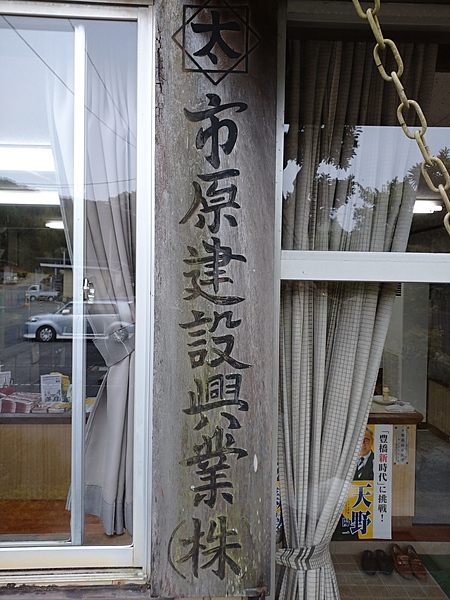 太
市原建設興業(株)
「豊橋新時代」に挑戦!
天野